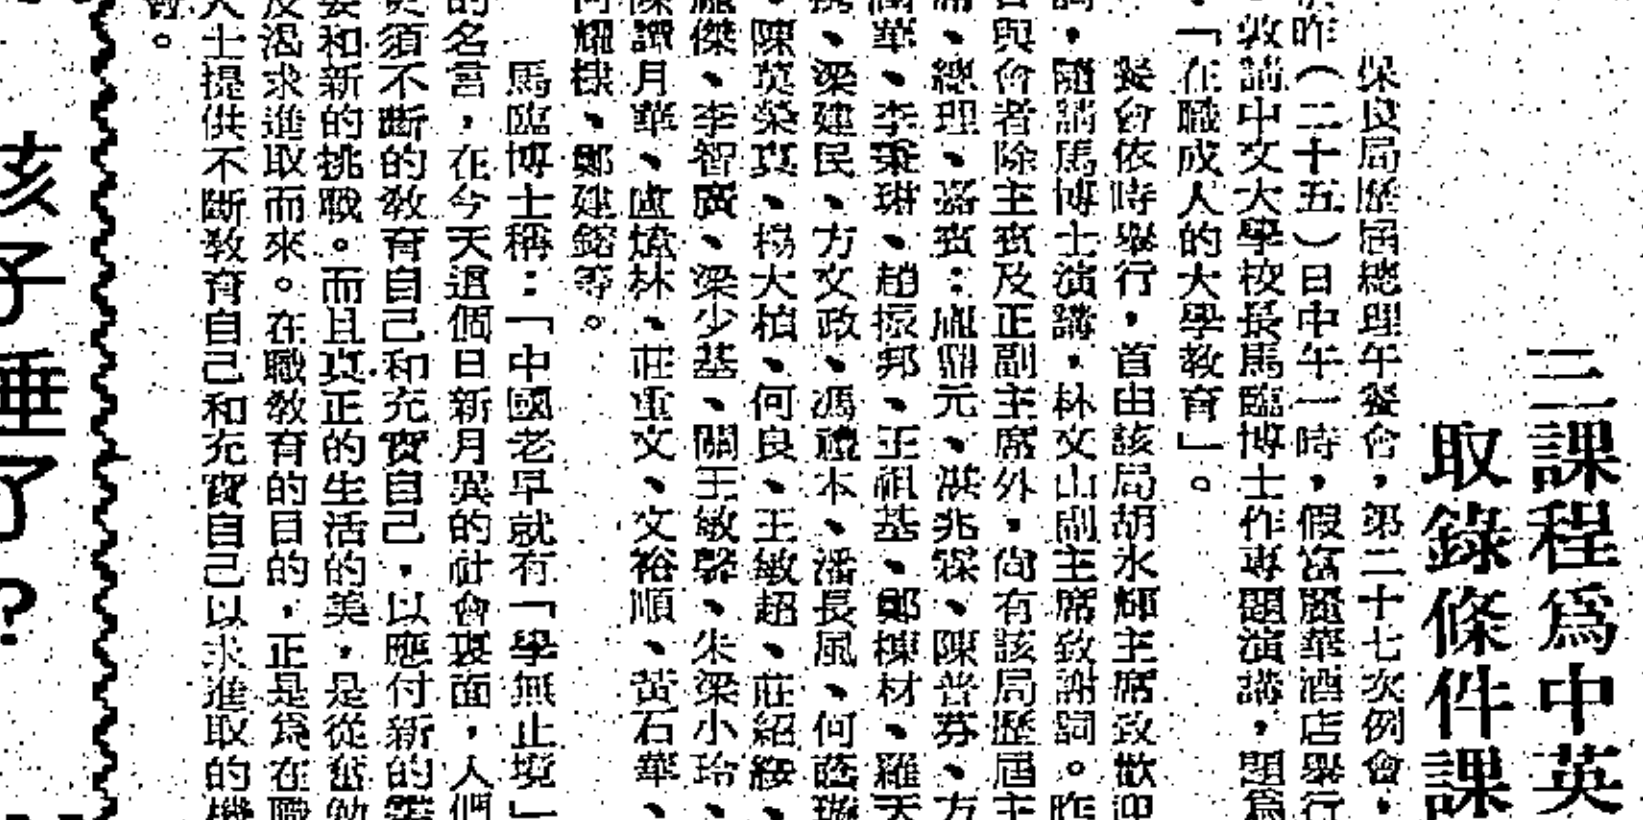 三課程爲中英
取錄條件課
保良局歷屆總理午餐會，第二十七次例會，
昨（二十五）日中午一時，假富麗華酒店舉行
敦請中文大學校長馬臨博士作專題演講，題爲
「在職成人的大學教育」。
餐會依時舉行，首由該局胡水輝主席致歡迎
，隨請馬博士演講，林文山副主席致謝詞。昨
與會者除主賓及正副主席外，尚有該局歷屆主
、總理、嘉賓：龐鼎元、洪兆霖、陳普芬、方
華、李秉琳、趙振邦、王祖基、鄭棟材、羅天
、梁建民、方文政、馮禮本、潘長風、何蔭璇
、陳英榮真、楊大楨、何良、王敏超、莊紹綏、
龐傑、李智廣、梁少基、關王敏馨、朱梁小玲、
陳譚月華、盧煒林、莊重文、文裕順、黃石華、
何耀棣、鄭建鎔等。
馬臨博士稱：「中國老早就有「學無止境」
的名言，在今天這個日新月異的社會裏面，人們
更須不斷的教育自己和充實自己，以應付新的需
要和新的挑戰。而且真正的生活的美，是從奮勉
及渴求進取而來。在職教育的目的，正是爲在職
人士提供不斷教育自己和充實自己以求進取的機
會。
孩子睡了？